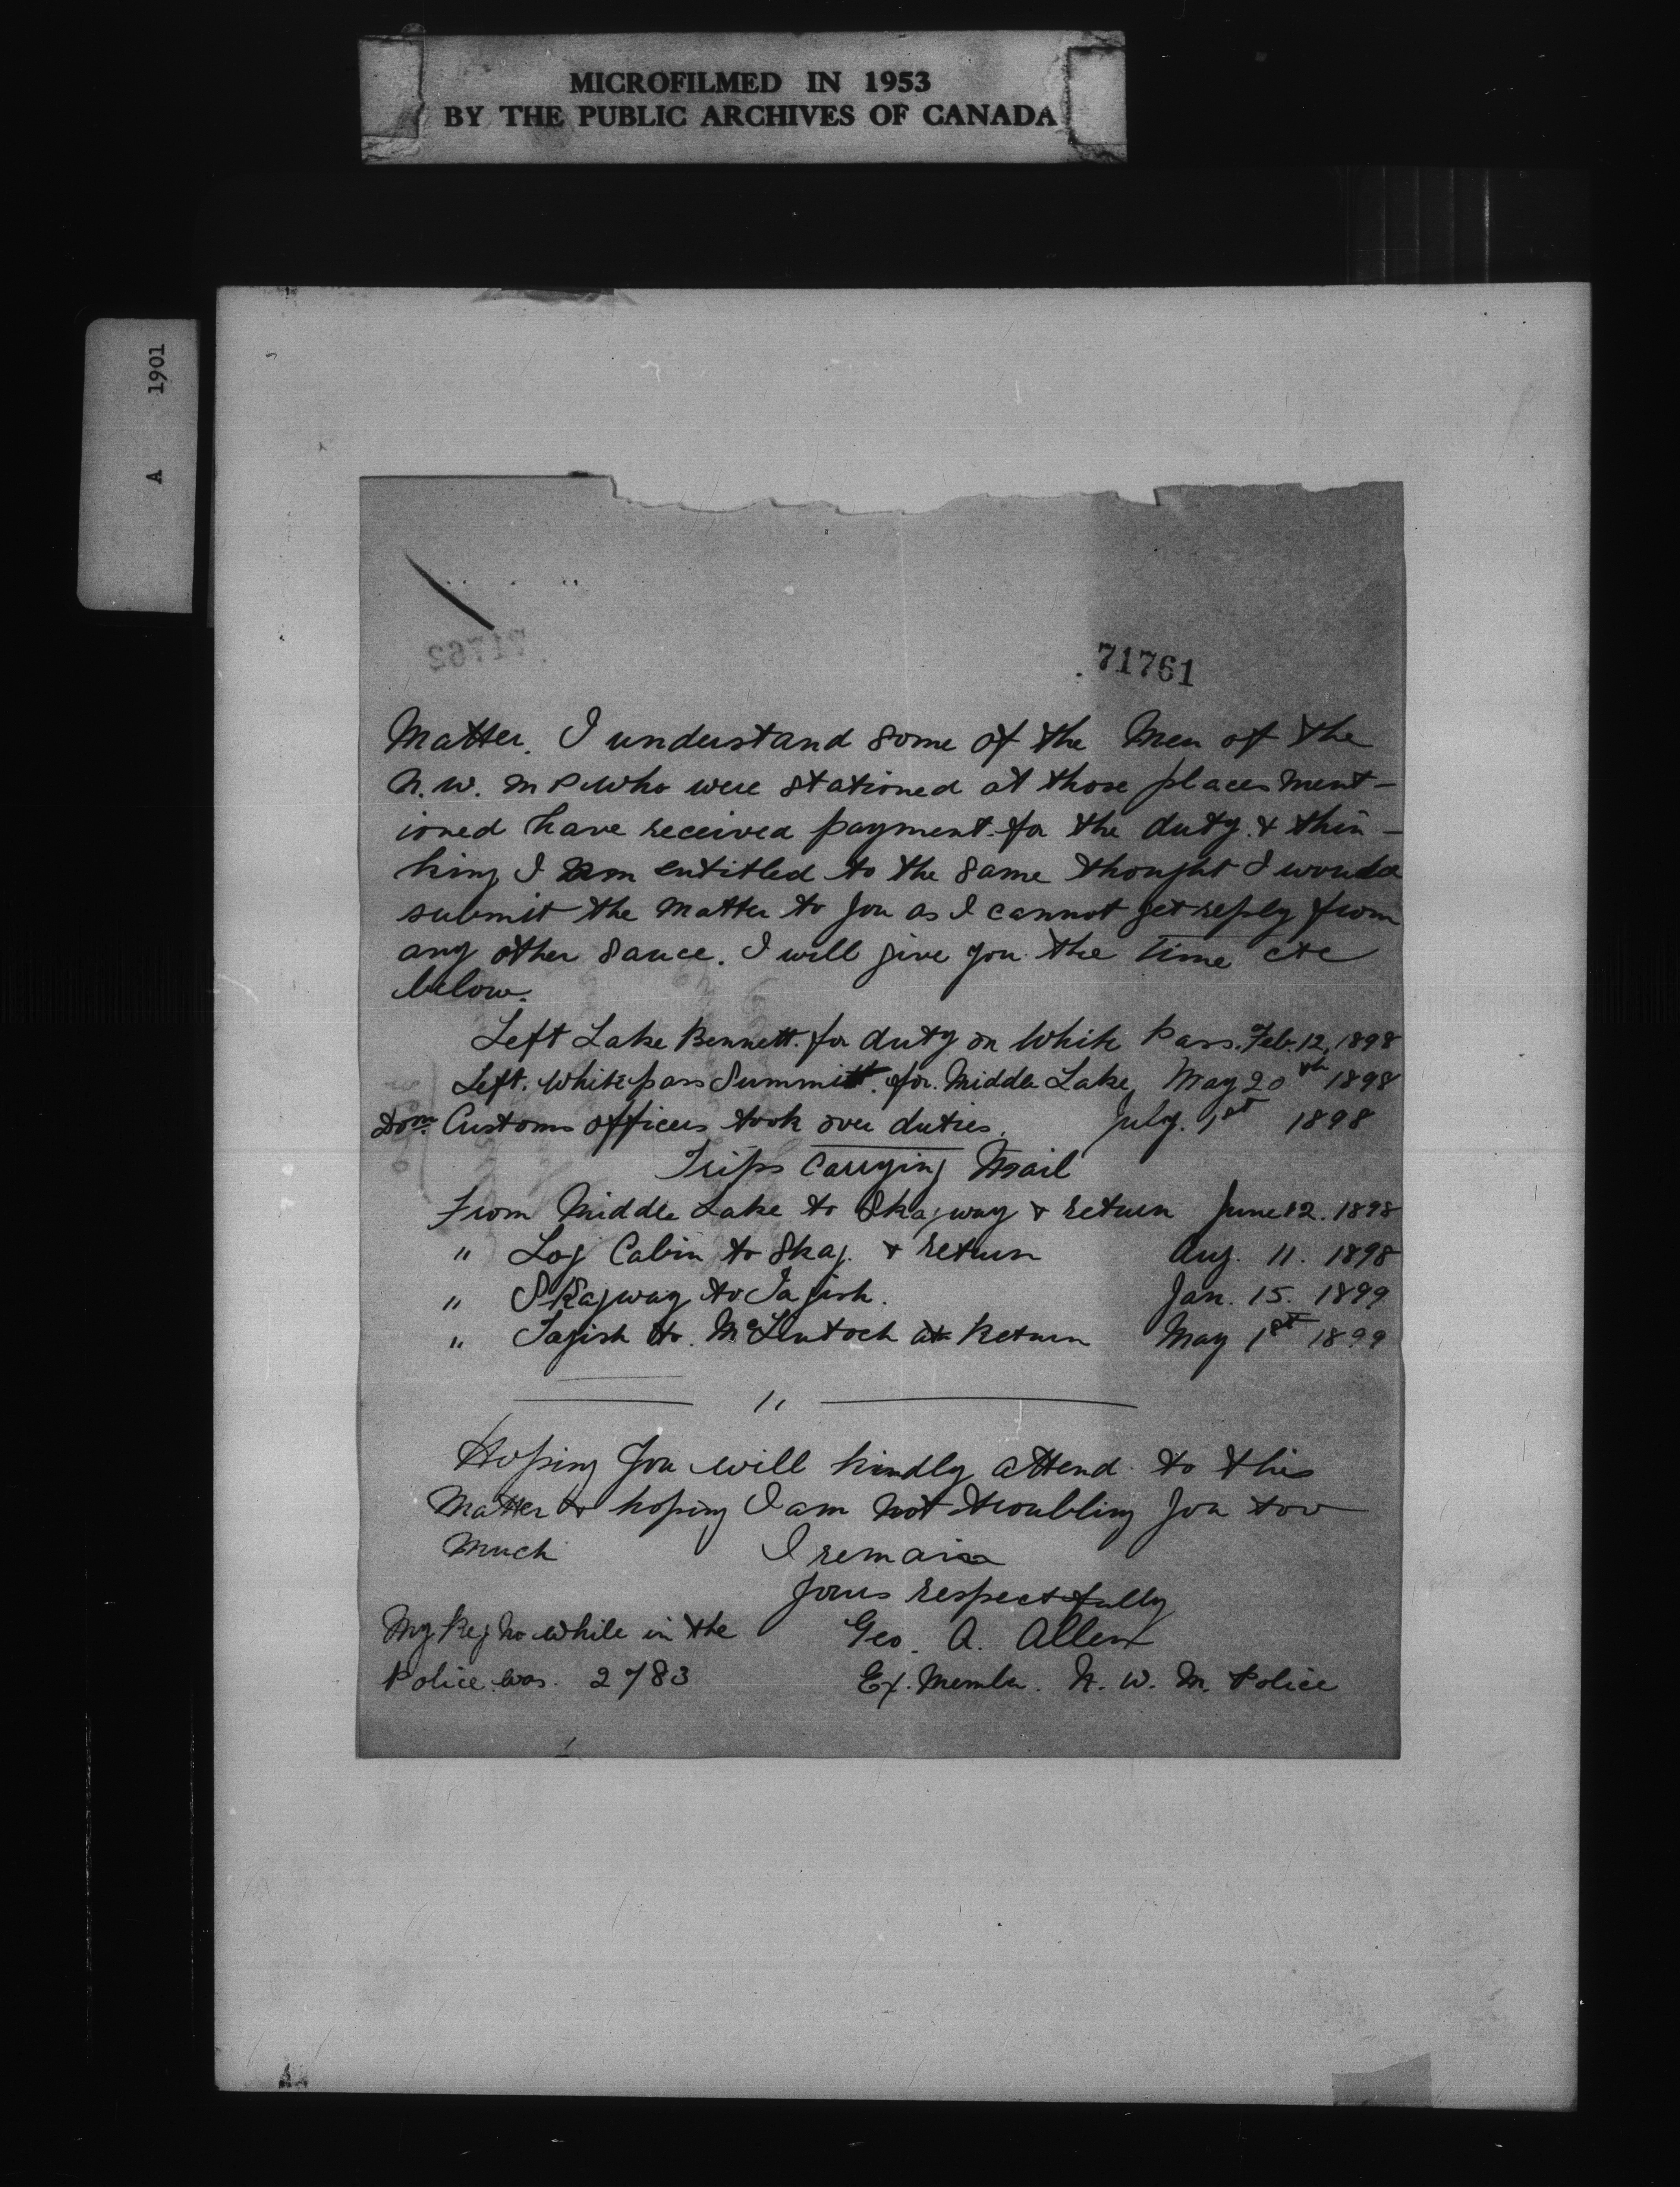 MICROFILMED IN 1953
BY THE PUBLIC ARCHIVES OF CANADA
A 1901
71762
71761
Matter. I understand some of the Men of the
N. W. M P who were stationed at those places ment-
ioned have received payment for the duty & thin-
king I am entitled to the same thought I would
submit the matter to you as I cannot get reply from
any other sauce. I will give you the time etc
below.
Left Lake Bennett for duty on White Pass. Feb. 12, 1898
Left White pass Summitt for Middle Lake, May 20th 1898
Dom. Customs officers took over duties. July. 1st 1898
Trips Carrying Mail
From Middle Lake to Skagway & return June 12. 1898
" Log Cabin to Skag. & return Aug. 11. 1898
" Skagway to Tagish. Jan. 15. 1899
" Tagish to McLintock & Return May 1st 1899
"
Hoping you will kindly attend to this
Matter & hoping I am not troubling you too
Much I remain
Yours respectfully
My Reg No while in the Geo. A. Allen
Police was. 2783 Ex. Member. N. W. M. Police